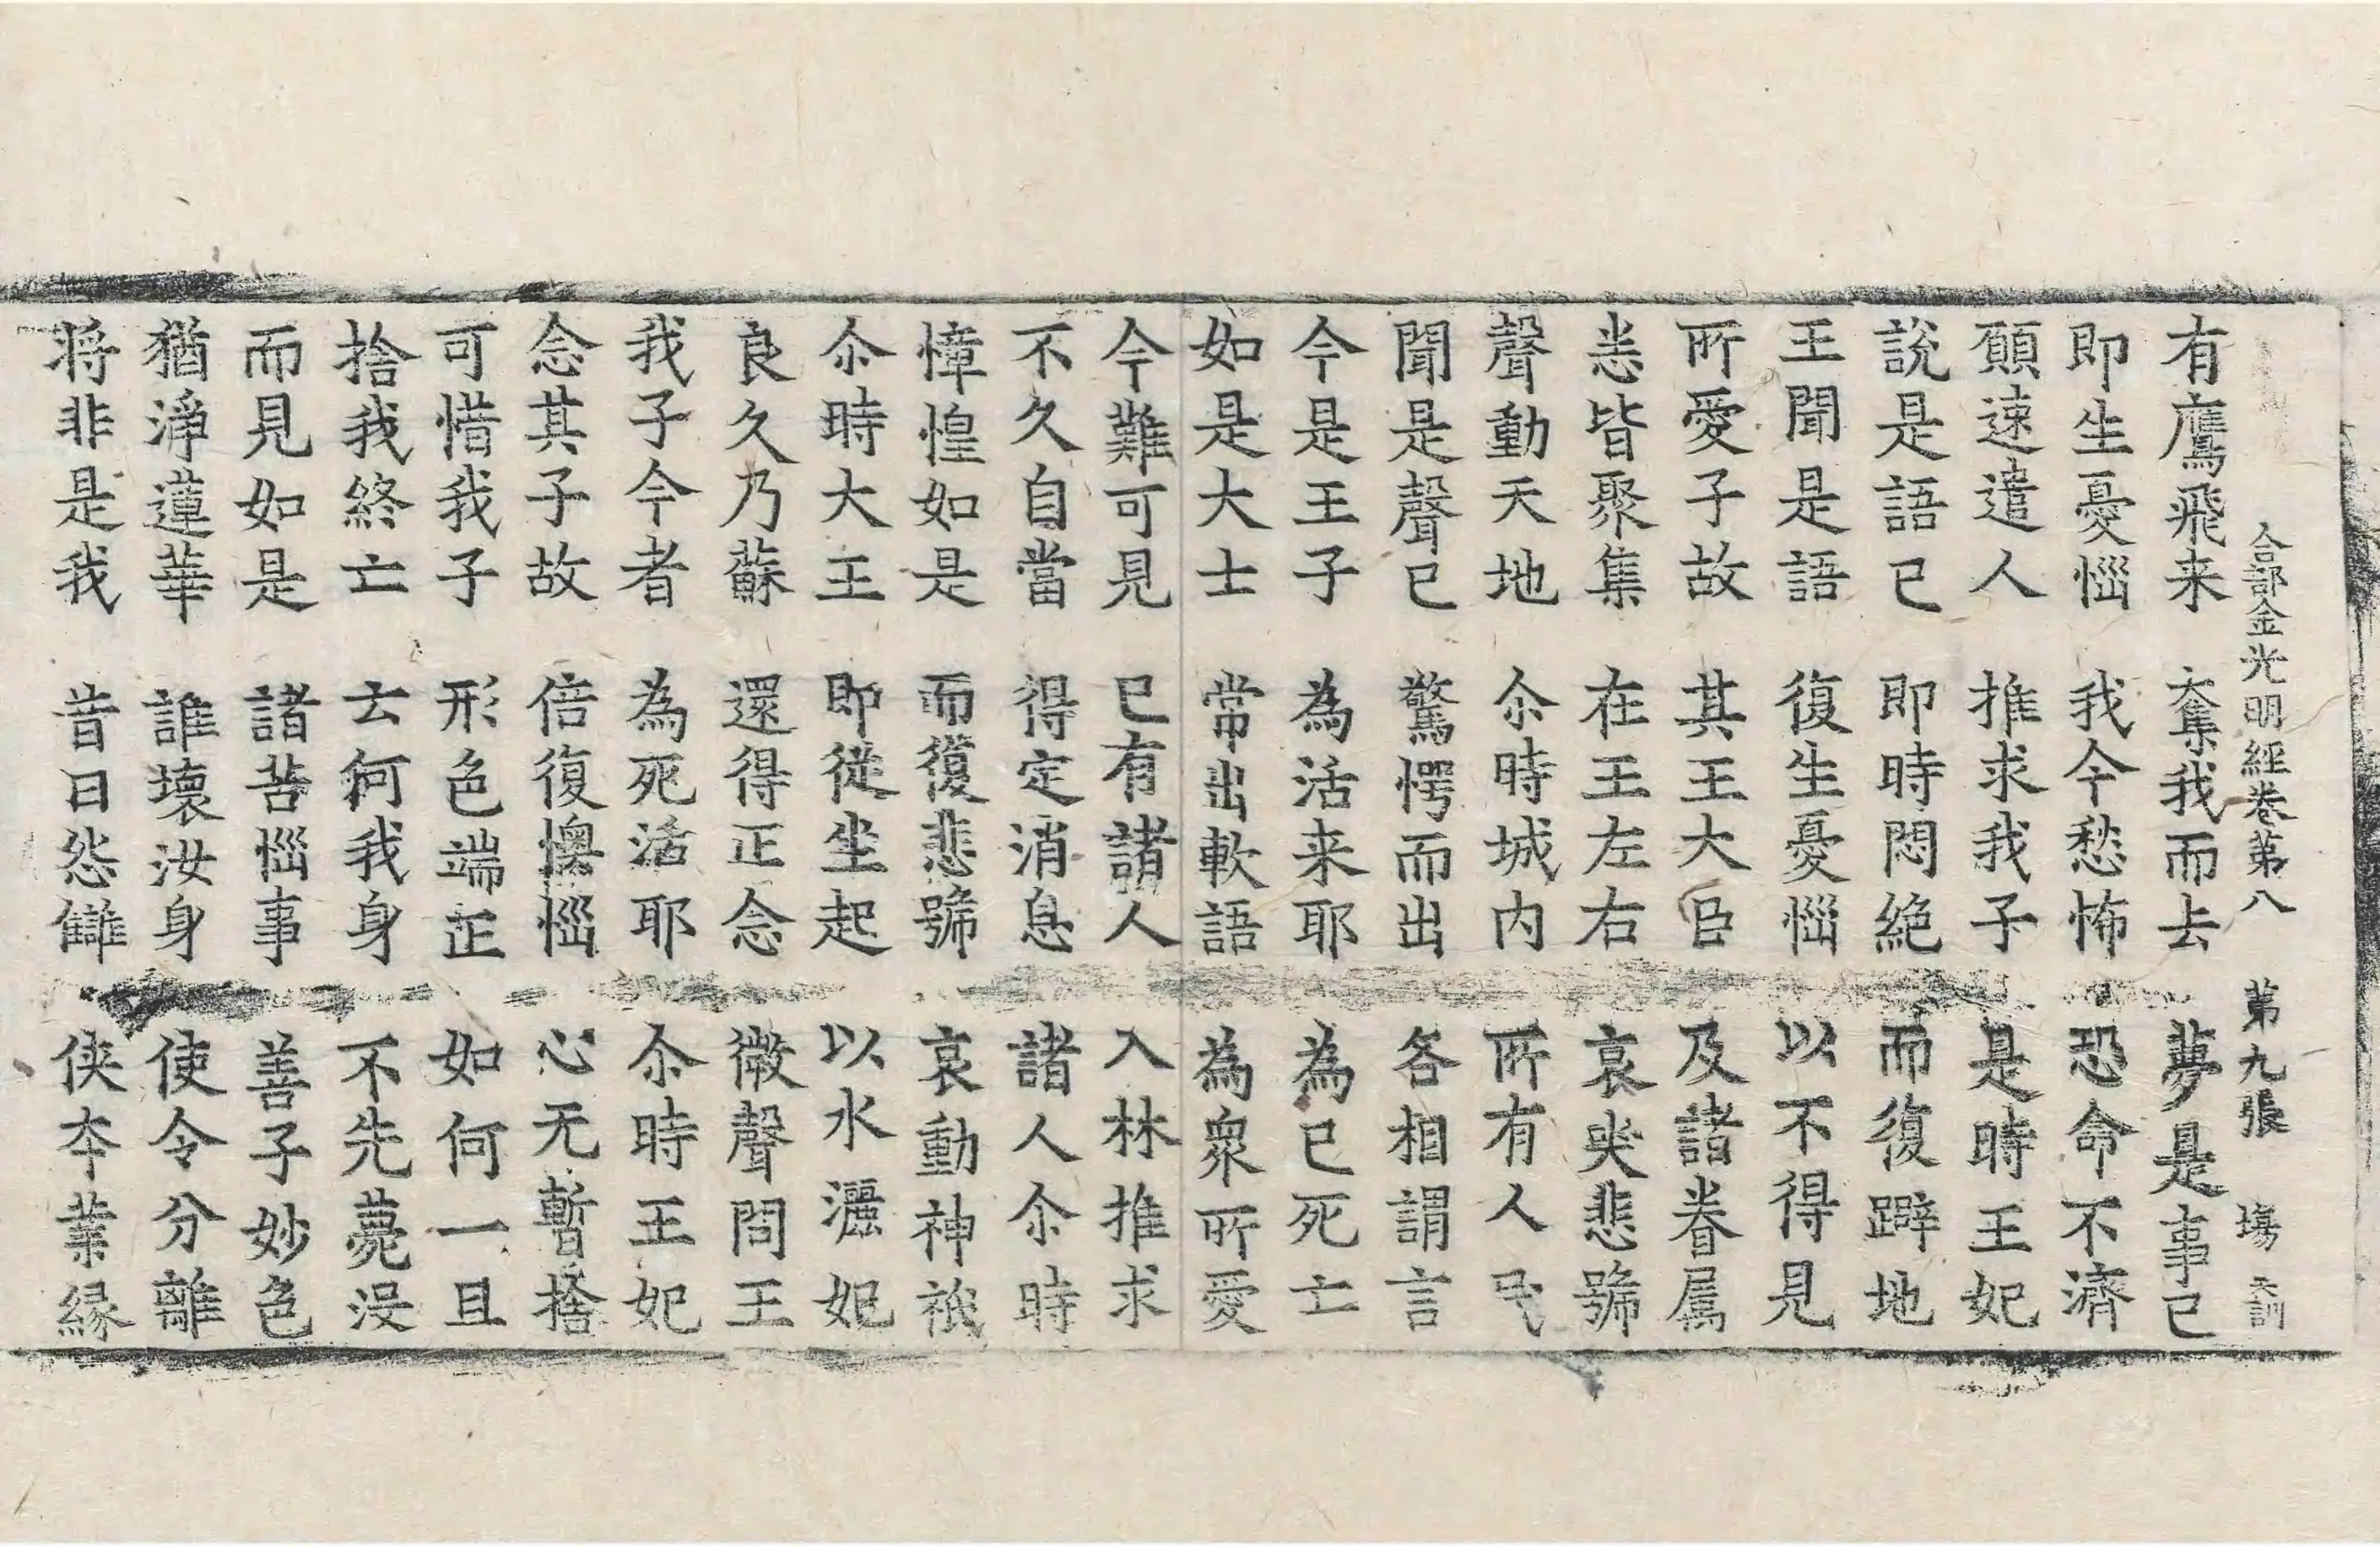 合部金光明經卷第八 第九張 塲 天訓
有鷹飛来 奪我而去 夢是事已
即生憂惱 我今愁怖 恐命不濟
願速遣人 推求我子 是時王妃
說是語已 即時悶絕 而復躃地
王聞是語 復生憂惱 以不得見
所愛子故 其王大臣 及諸眷属
悉皆聚集 在王左右 哀哭悲號
聲動天地 尒時城内 所有人民
聞是聲已 驚愕而出 各相謂言
今是王子 為活来耶 為已死亡
如是大士 常出軟語 為衆所愛
今難可見 已有諸人 入林推求
不久自當 得定消息 諸人尒時
慞惶如是 而復悲號 哀動神祇
尒時大王 即從坐起 以水灑妃
良久乃蘇 還得正念 微聲問王
我子今者 為死活耶 尒時王妃
念其子故 倍復懊惱 心无暫捨
可惜我子 形色端正 如何一旦
捨我終亡 云何我身 不先薨没
而見如是 諸苦惱事 善子妙色
猶淨蓮華 誰壞汝身 使令分離
将非是我 昔日怨讎 俠本業緣